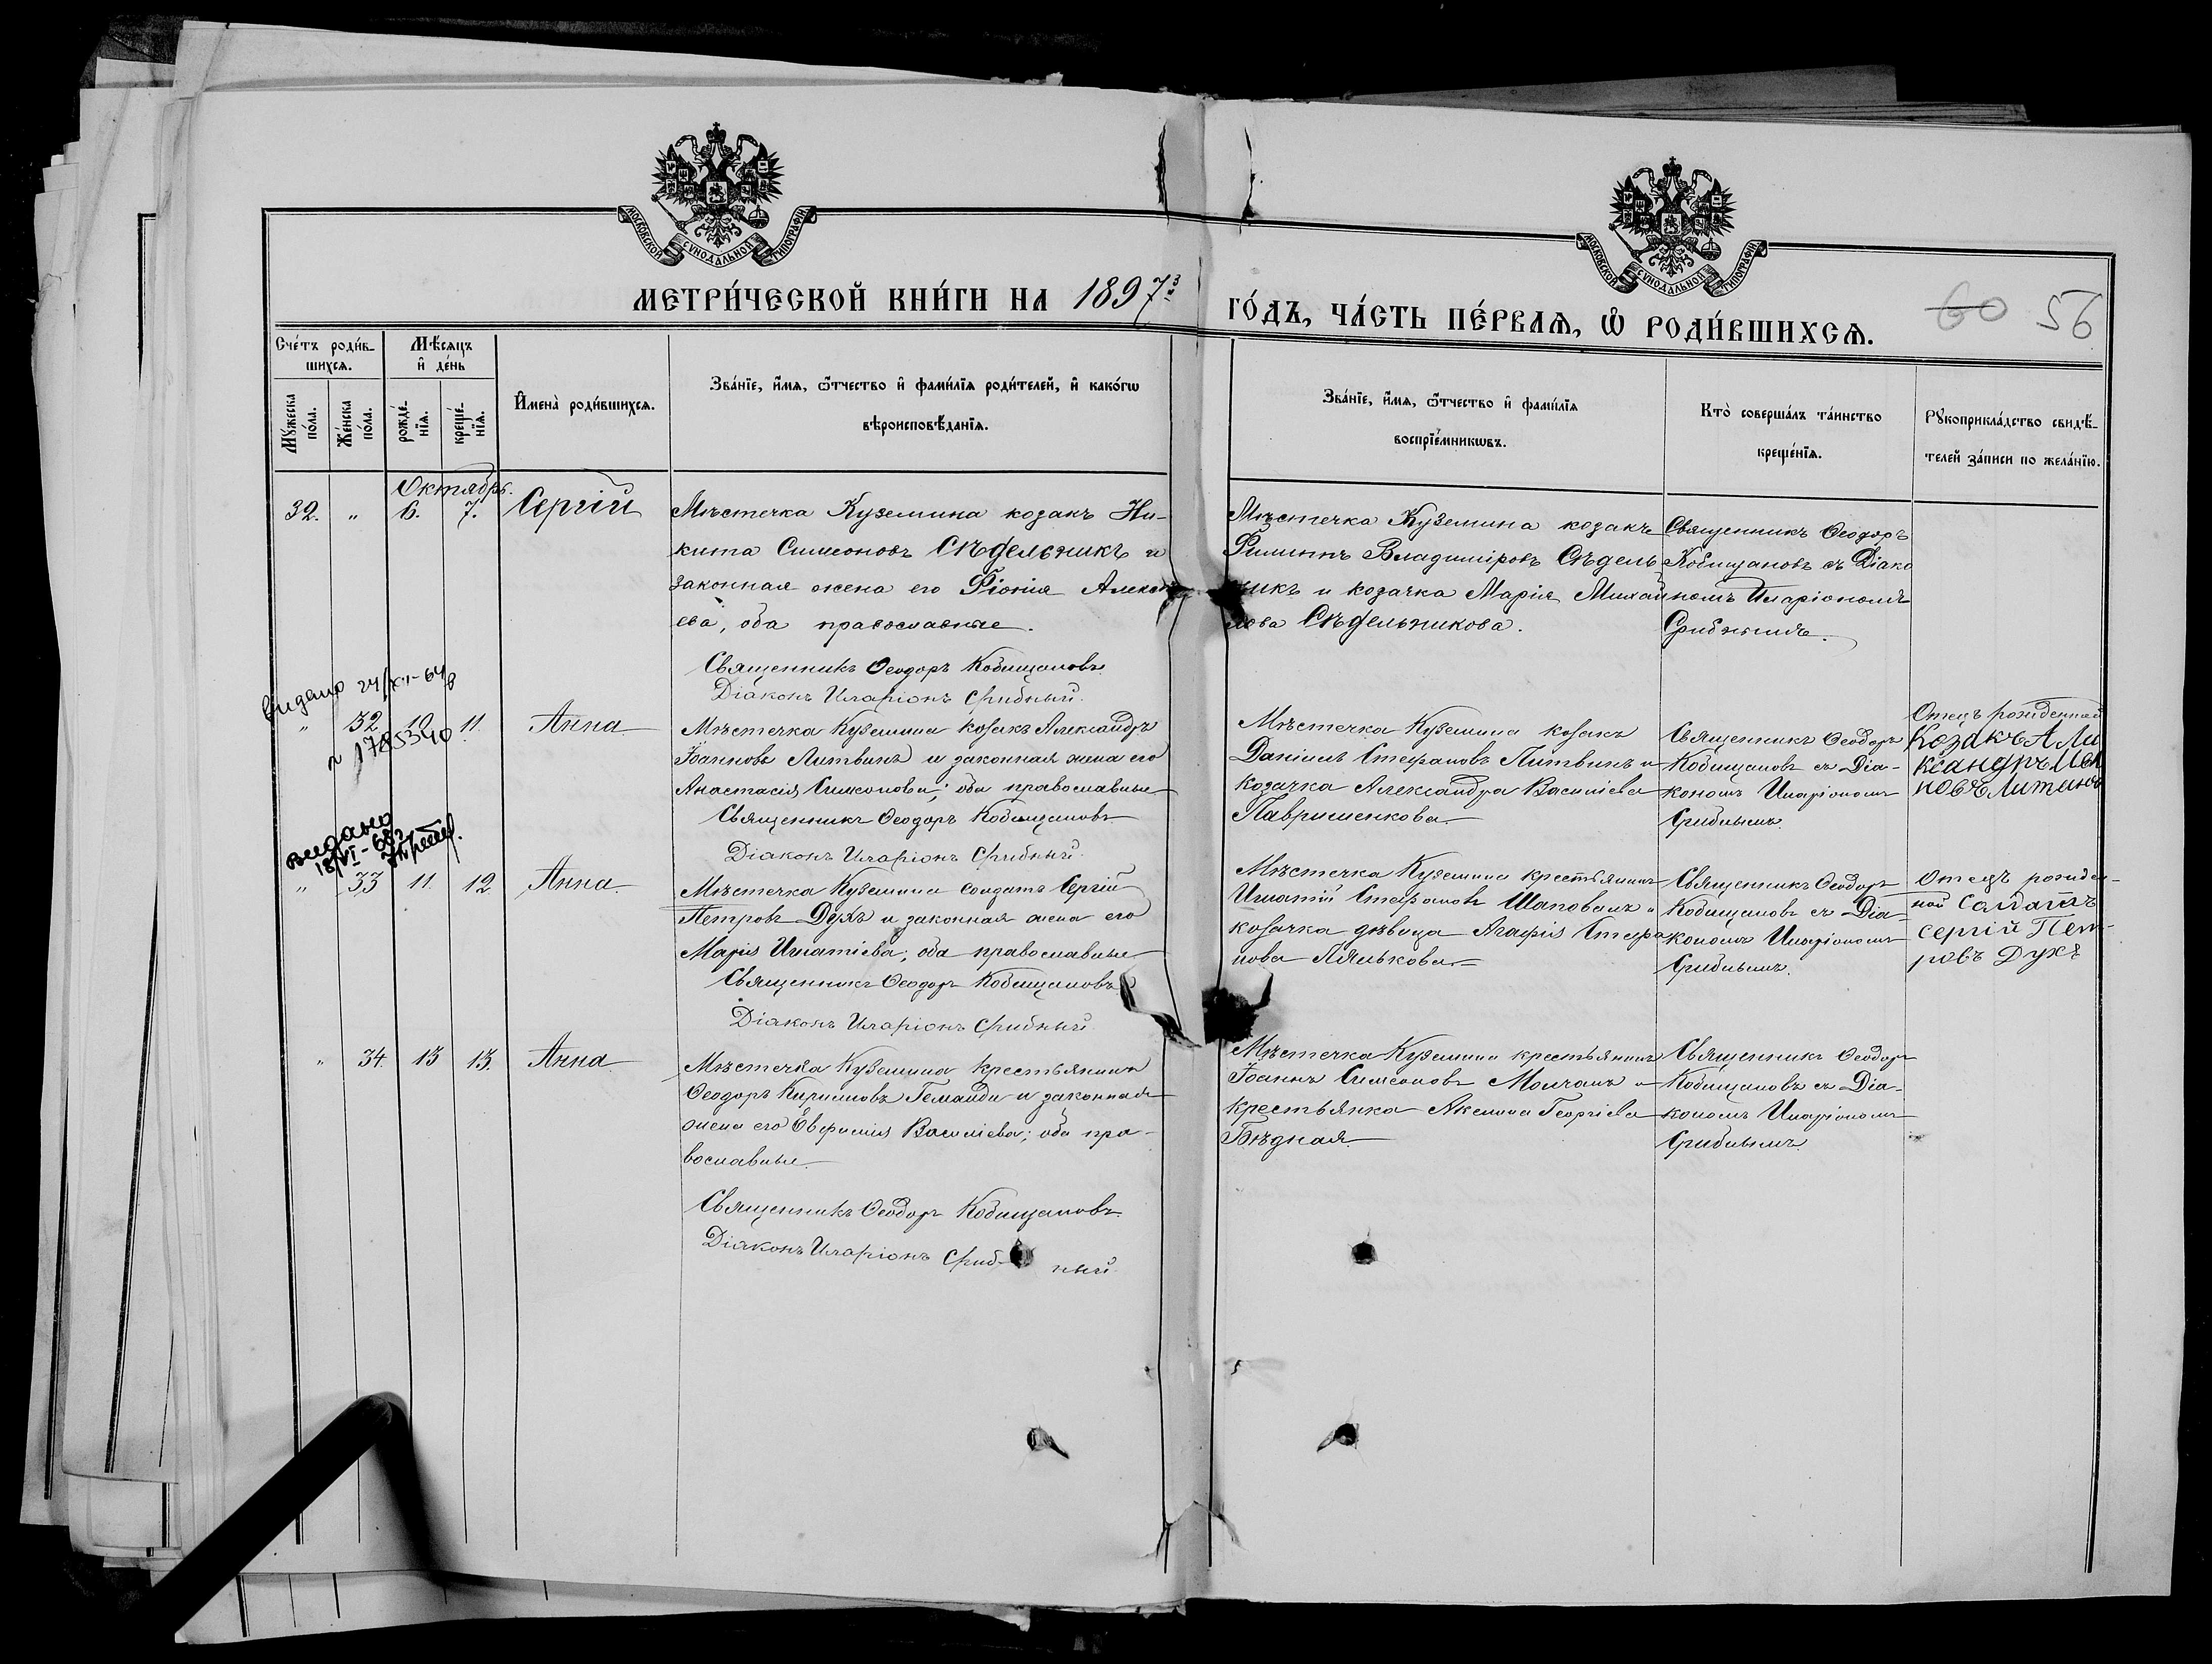 МОСКОВСКОЙ СѴНОДАЛЬНОЙ ТИПОГРАФІИ
МОСКОВСКОЙ СѴНОДАЛЬНОЙ ТИПОГРАФІИ
МЕТРИ́ЧЕСКОЙ КНИ́ГИ НА 1897й
ГО́ДЪ, ЧА́СТЬ ПЕ́РВАѦ, Ѡ҆ РОДИ́ВШИХСѦ.
60 56
Сче́тъ роди́в-
шихсѧ.
Мѣ́сѧцъ
и҆ де́нь
Мꙋ́жеска
по́ла.
Же́нска
по́ла.
рожде́-
нїѧ.
креще́-
нїѧ.
И҆мена̀ роди́вшихсѧ.
Зва́нїе, и҆́мѧ, ѻ҆́тчество и҆ фами́лїѧ роди́телей, и҆ како́гѡ
вѣроисповѣ́данїѧ.
Зва́нїе, и҆́мѧ, ѻ҆́тчество и҆ фами́лїѧ
воспрїе́мникѡвъ.
Кто̀ соверша́лъ та́инство
креще́нїѧ.
Рꙋкоприкла́дство свидѣ́-
телей за́писи по жела́нїю.
Октябрь.
32. " 6. 7. Сергій
Мѣстечка Куземина козакъ Ни-
кита Симеоновъ Сѣдельникъ и
законная жена его Ѳіонія Алексѣ
ева, оба православные.
Священникъ Ѳеодоръ Кобищановъ
Діаконъ Иларіонъ Срибный.
Мѣстечка Куземина козакъ
Филиппъ Владиміровъ Сѣдель
никъ и козачка Марія Михаи
лова Сѣдельникова.
Священникъ Ѳеодоръ
Кобищановъ съ Діако
номъ Иларіономъ
Срибнымъ.
видано 24/XI-64
№ 1785340
" 32 10 11. Анна
Мѣстечка Куземина козакъ Александръ
Іоанновъ Литвинъ и законная жена его
Анастасія Симеонова; оба православные
Священникъ Ѳеодоръ Кобищановъ
Діаконъ Иларіонъ Срибный.
Мѣстечка Куземина козакъ
Даніилъ Стефановъ Литвинъ и
козачка Александра Василіева
Гавришенкова.
Священникъ Ѳеодоръ
Кобищановъ съ Діа-
кономъ Иларіономъ
Срибнымъ.
Отецъ рожденной
Козакъ Али
ксандръ Ива
новъ Литвинъ
видано
18/VI-68
" 33 11. 12 Анна.
Мѣстечка Куземина солдатъ Сергій
Петровъ Духъ и законная жена его
Марія Игнатіева; оба православные
Священникъ Ѳеодоръ Кобищановъ
Діаконъ Иларіонъ Срибный.
Мѣстечка Куземина крестьянинъ
Игнатій Стефановъ Шаповалъ и
козачка дѣвица Агафія Стефа
нова Лялькова
Священникъ Ѳеодоръ
Кобищановъ съ Діа-
кономъ Иларіономъ
Срибнымъ.
Отецъ рожден-
ной Салдатъ
сергій Пет-
ровъ Духъ
" 34. 13 13. Анна
Мѣстечка Куземина крестьянинъ
Ѳеодоръ Кирилловъ Гемайда и законная
жена его Евфимія Василіева; оба пра-
вославные
Священникъ Ѳеодоръ Кобищановъ.
Діаконъ Иларіонъ Сриб ный.
Мѣстечка Куземина крестьянинъ
Іоаннъ Симеоновъ Молчанъ и
крестьянка Акелина Георгіева
Бѣдная.
Священникъ Ѳеодоръ
Кобищановъ съ Діа-
кономъ Иларіономъ
Срибнымъ.